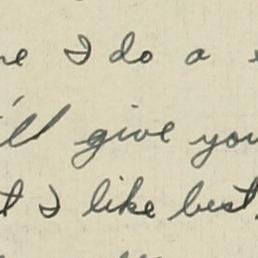 I do a
give you
I like best